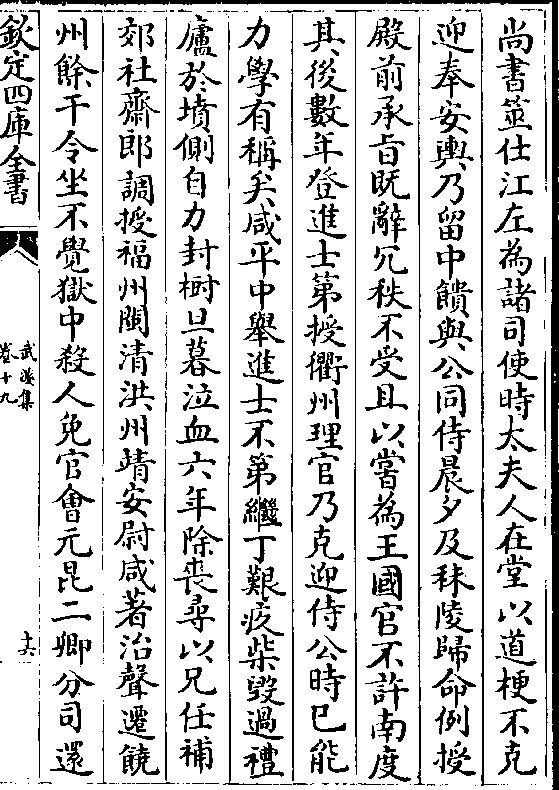 尚書筮仕江左為諸司使時太夫人在堂以道梗不克
迎奉安輿乃留中饋與公同侍晨夕及秣陵歸命例授
殿前承旨既辭冗秩不受且以嘗為王國官不許南度
其後數年登進士第授衢州理官乃克迎侍公時已能
力學有稱矣咸平中舉進士不第繼丁艱疚柴毀過禮
廬於墳側自力封樹旦暮泣血六年除喪尋以兄任補
郊社齋郎調授福州閩清洪州靖安尉咸著治聲遷饒
州餘干令坐不覺獄中殺人免官會元昆二卿分司還
欽定四庫全書
武溪集
卷十九
十六